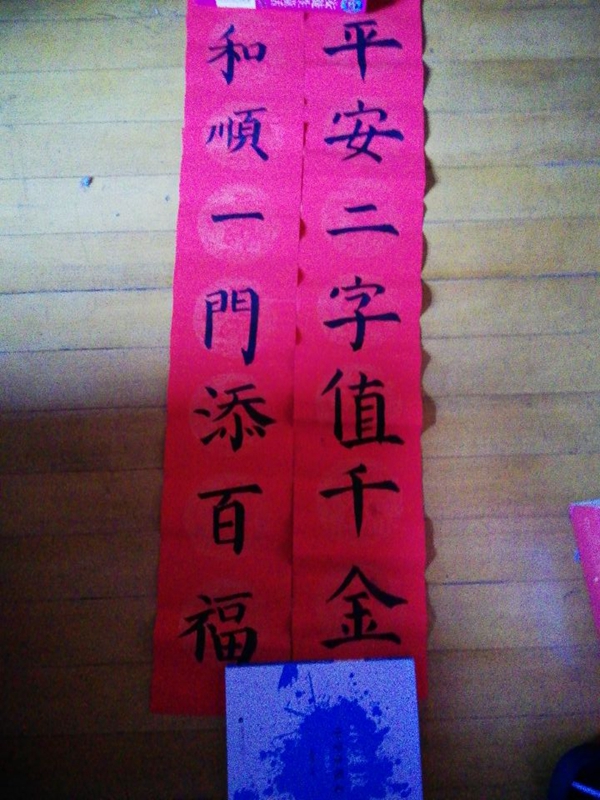 平安二字值千金
和順一門添百福